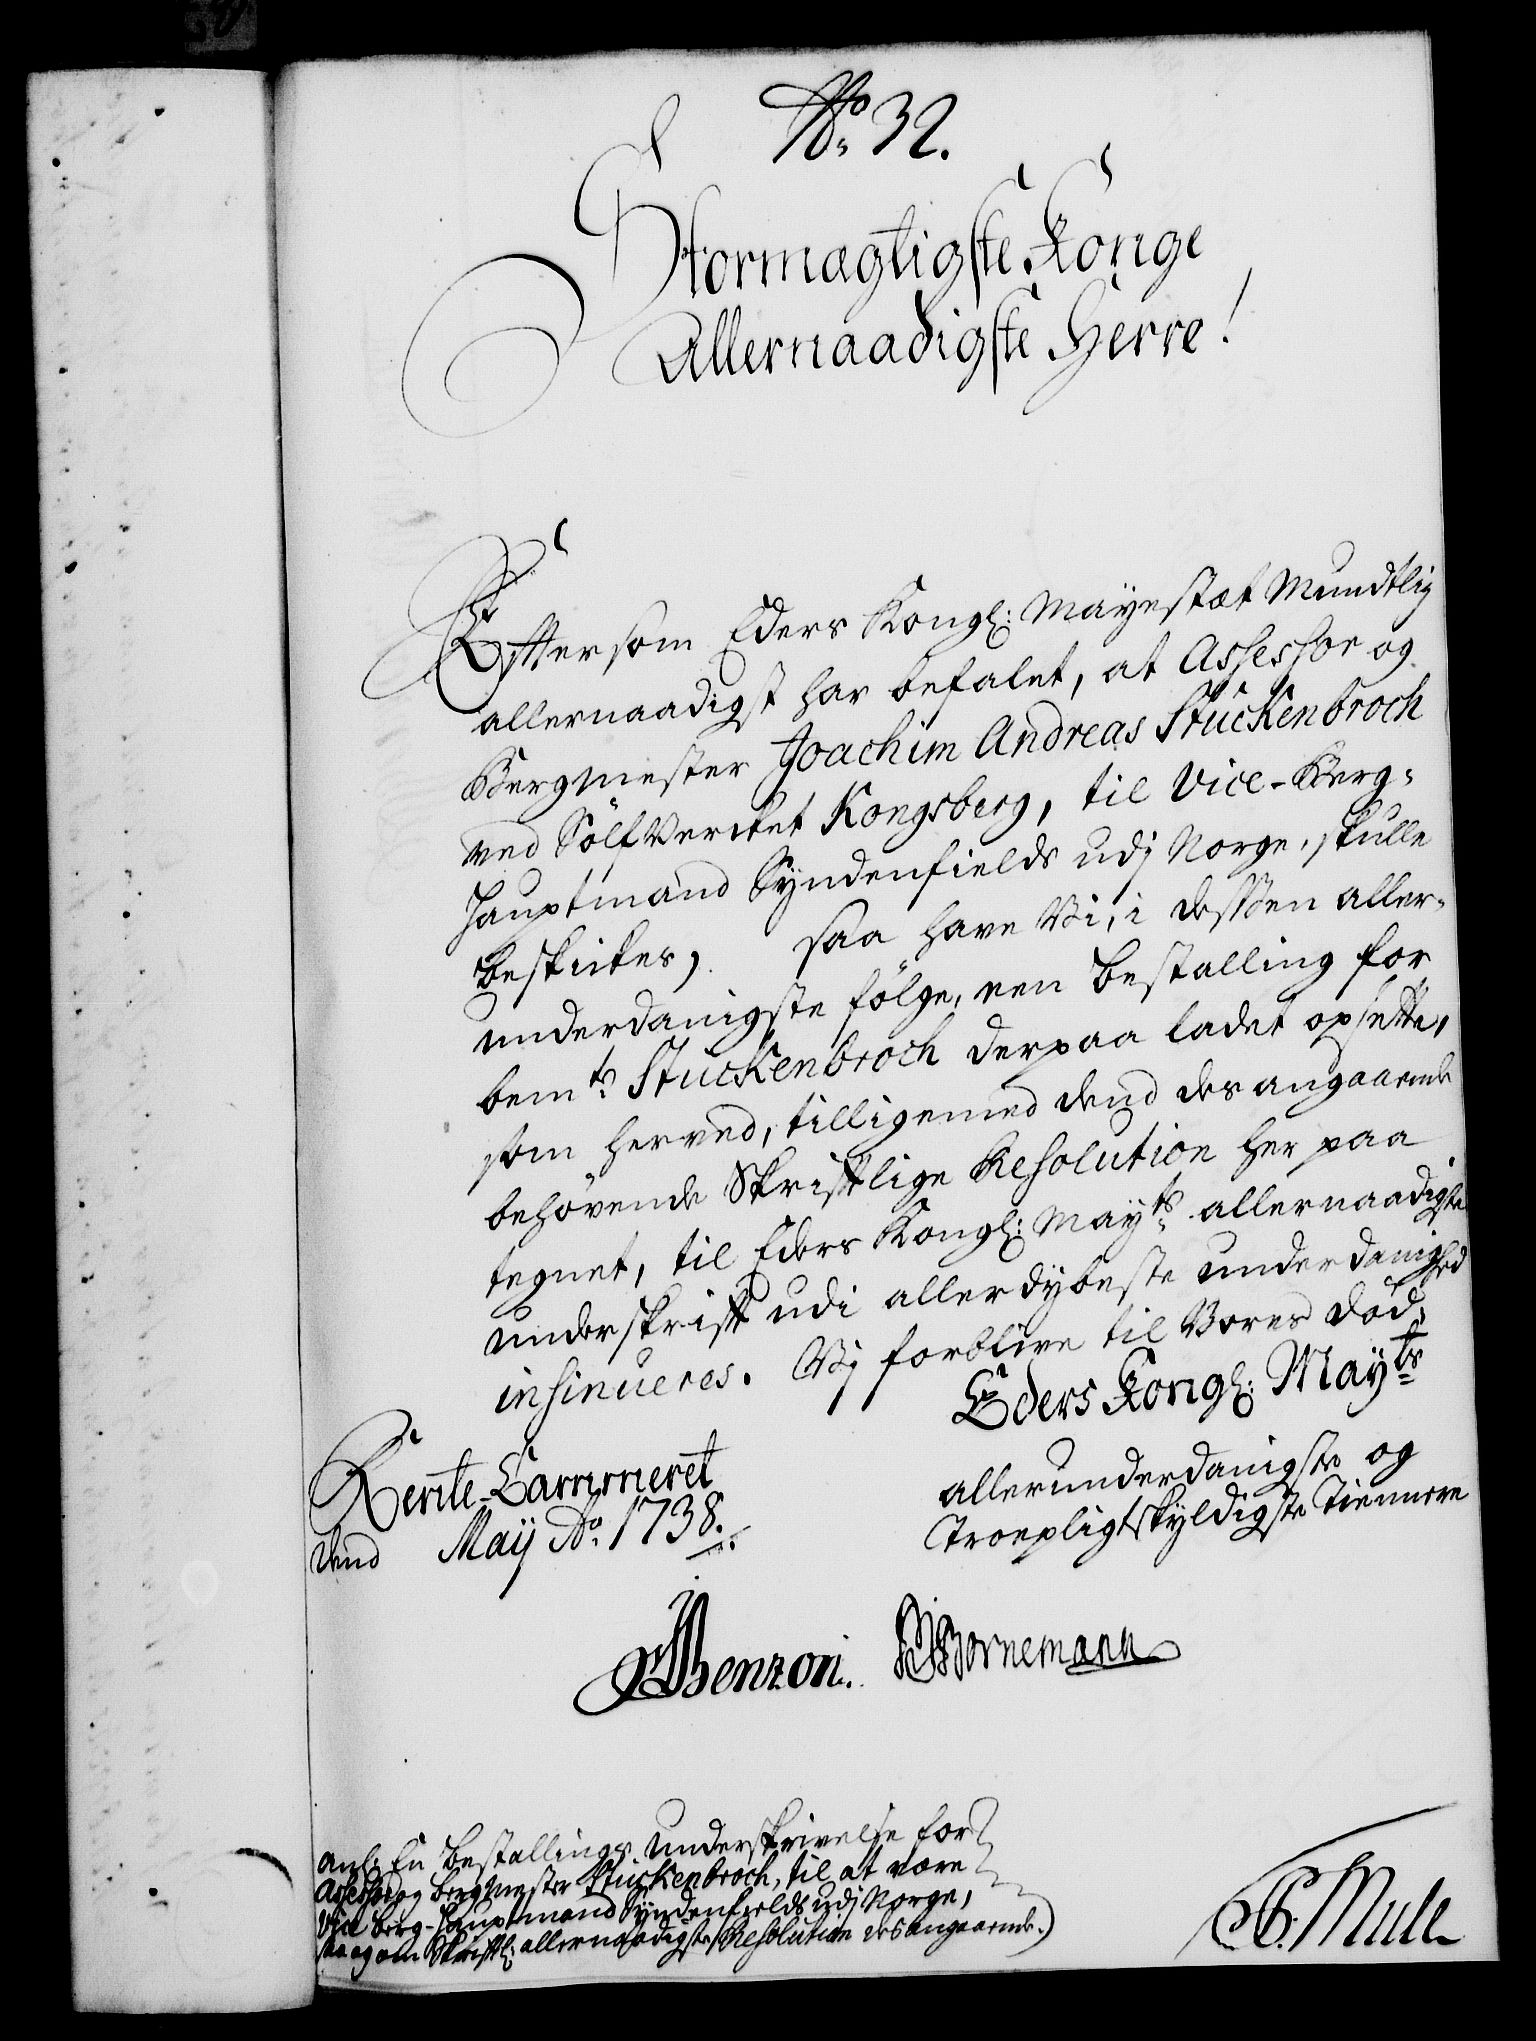 No. 32.
Stormægtigste Konge
Allernaadigste Herre!
Eftersom Eders Kongl: Mayestæt Mundtlig
allernaadigst har befalet, at Assessor og
Bergmester Joachim Andreas Stuckenbroch
ved Sölfverket Kongsberg, til Vice-Berg-
Hauptmand Syndenfields udj Norge, skulle
beskikkes, saa have Vi, i dessen aller-
underdanigste fölge, een Bestalling for
bemte Stuckenbroch derpaa ladet opsette,
som herved, tilligemed dend desangaaende
behövende Skriftlige Resolution her paa
tegnet, til Eders Kongl: Mayts allernaadigste
underskrift udi allerdybeste underdanighed
insinueres. Vj forblive til Vores död,
Eders Kongl: Mayts
allerunderdanigste og
Troepligtskyldigste Tiennere
Rente-Cammeret
dend May Ao. 1738.
Benzon. Bornemann
anl: En Bestallings Underskrivelse for
Assessor og Bergmester Stuckenbroch, til at være
Vice Berg-Hauptmand Syndenfields udj Norge,
saa og om Skriftl: allernaadigste Resolution desangaaende.)
Mule